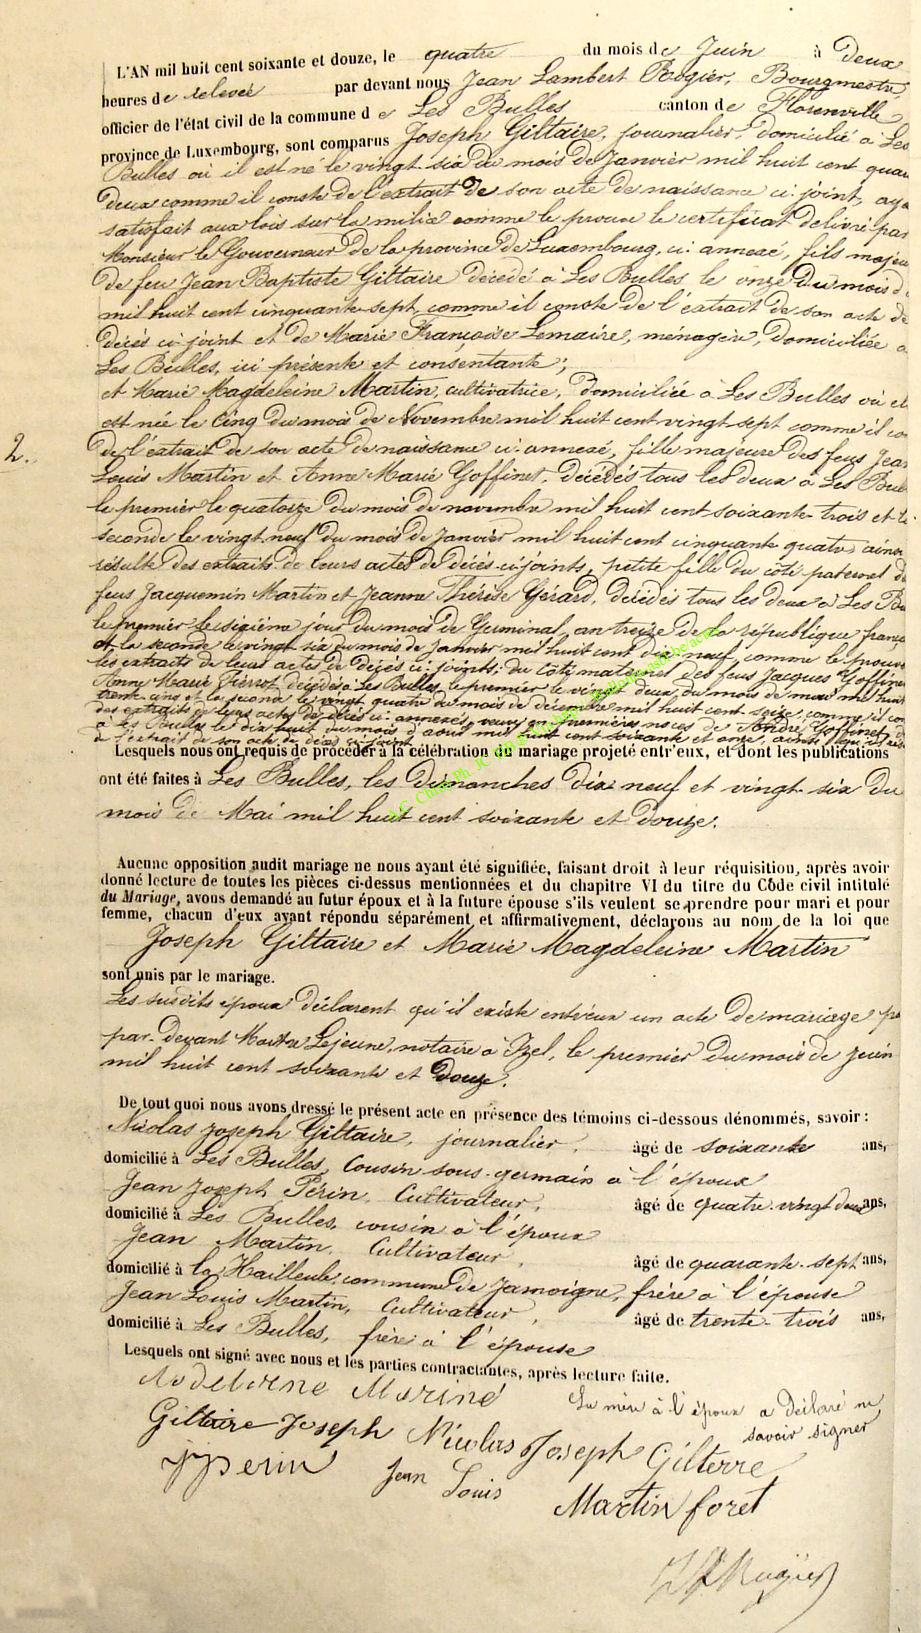 L'AN mil huit cent soixante et douze, le quatre du mois de Juin à deux
heures de relevée par devant nous Jean Lambert Rogier, Bourgmestre,
officier de l'état civil de la commune de Les Bulles canton de Florenville
province de Luxembourg, sont comparus Joseph Giltaire, journalier, domicilié à Les
Bulles où il est né le vingt-six du mois de Janvier mil huit cent quar
deux comme il conste de l'extrait de son acte de naissance ci-joint, aya
satisfait aux lois sur la milice comme le prouve le certificat délivré par
Monsieur le Gouverneur de la province de Luxembourg, ci-annexé, fils majeur
de feu Jean Baptiste Giltaire décédé à Les Bulles le onze du mois d
mil huit cent cinquante-sept, comme il conste de l'extrait de son acte de
décès ci-joint et de Marie Françoise Lemaire, ménagère, domiciliée à
Les Bulles, ici présente et consentante;
et Marie Magdeleine Martin, cultivatrice, domiciliée à Les Bulles où el
est née le cinq du mois de Novembre mil huit cent vingt-sept comme il co
2. de l'extrait de son acte de naissance ci-annexé, fille majeure des feus Jean
Louis Martin et Anne Marie Goffinet, décédés tous les deux à Les Bul
le premier le quatorze du mois de novembre mil huit cent soixante-trois et la
seconde le vingt-neuf du mois de Janvier mil huit cent cinquante quatre ainsi
résulte des extraits de leurs actes de décès ci-joints, petite fille du côté paternel de
feus Jacquemin Martin et Jeanne Thérèse Gérard, décédés tous les deux à Les Bu
le premier le sixième jour du mois de Germinal an treize de la république frança
et la seconde le vingt six du mois de Janvier mil huit cent dix neuf comme le prouve
les extraits de leurs actes de décès ci-joints; du côté maternel des feus Jacques Goffinet
Anne Marie Pierrot décédés à Les Bulles, le premier le vingt deux du mois de mars mil huit
trente-cinq et la seconde le vingt quatre du mois de décembre mil huit cent seize comme il con
des extraits de leurs actes de décès ci-annexés, veuve en premières noces de André Goffinet, dé
à Les Bulles le dix huit du mois d'août mil huit cent soixante et onze, ainsi qu'il rés
de l'extrait de son acte de décès ci-joint
Lesquels nous ont requis de procéder à la célébration du mariage projeté entr'eux, et dont les publications
ont été faites à Les Bulles, les dimanches dix neuf et vingt-six du
mois de Mai mil huit cent soixante et douze.
Aucune opposition audit mariage ne nous ayant été signifiée, faisant droit à leur réquisition, après avoir
donné lecture de toutes les pièces ci-dessus mentionnées et du chapitre VI du titre du Côde civil intitulé
du Mariage, avons demandé au futur époux et à la future épouse s'ils veulent se prendre pour mari et pour
femme, chacun d'eux ayant répondu séparément et affirmativement, déclarons au nom de la loi que
Joseph Giltaire et Marie Magdeleine Martin
sont unis par le mariage.
Les susdits époux déclarent qu'il existe entr'eux un acte de mariage
par-devant Maître Lejeune, notaire à Izel, le premier du mois de juin
mil huit cent soixante et douze.
De tout quoi nous avons dressé le présent acte en présence des témoins ci-dessous dénommés, savoir :
Nicolas Joseph Giltaire, journalier, âgé de soixante ans,
domicilié à Les Bulles, cousin sous-germain à l'époux
Jean Joseph Périn, Cultivateur, âgé de quatre-vingt deux ans,
domicilié à Les Bulles, cousin à l'époux
Jean Martin, Cultivateur, âgé de quarante-sept ans,
domicilié à la Hailleule, commune de Jamoigne, frère à l'épouse
Jean Louis Martin, Cultivateur, âgé de trente-trois ans,
domicilié à Les Bulles, frère à l'épouse
Lesquels ont signé avec nous et les parties contractantes, après lecture faite.
La mère à l'époux a déclaré ne
savoir signer
Giltaire Joseph Nicolas Joseph Gilterre
jjperin Jean Louis Martin foret